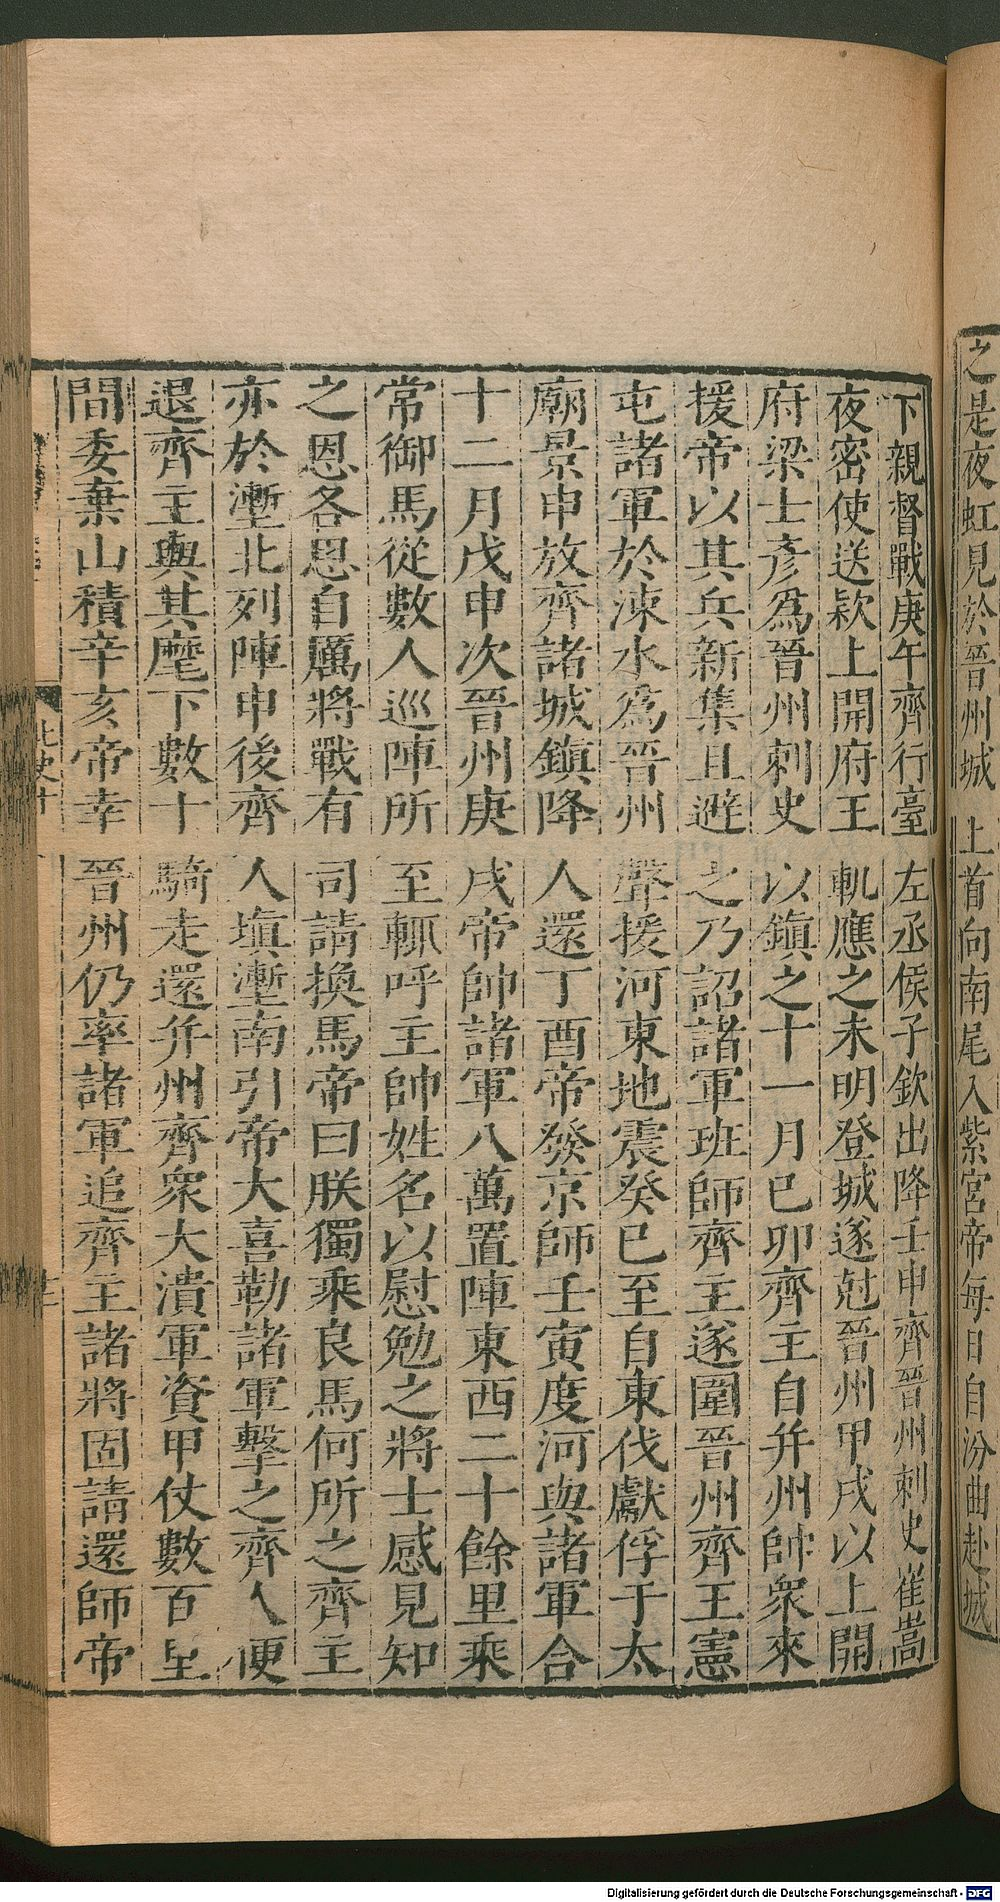 之是夜虹見於晉州城上首向南尾入紫宮帝每日自汾曲赴城
下親督戰庚午齊行臺左丞侯子欽出降壬申齊晉州刺史崔嵩
夜密使送款上開府王軌應之未明登城遂尅晉州甲戌以上開
府梁士彥爲晉州刺史以鎮之十一月巳卯齊主自幷州帥衆來
援帝以其兵新集且避之乃詔諸軍班師齊主遂圍晉州齊王憲
屯諸軍於涑水爲晉州聲援河東地震癸巳至自東伐獻俘于太
廟景申放齊諸城鎮降人還丁酉帝發京師壬寅度河與諸軍合
十二月戊申次晉州庚戌帝帥諸軍八萬置陣東西二十餘里乘
常御馬從數人巡陣所至輒呼主帥姓名以慰勉之將士感見知
之恩各思自厲將戰有司請換馬帝曰朕獨乘良馬何所之齊主
亦於塹北列陣申後齊人塡塹南引帝大喜勒諸軍擊之齊人便
退齊主與其麾下數十騎走還幷州齊衆大潰軍資甲仗數百里
間委棄山積辛亥帝幸晉州仍率諸軍追齊主諸將固請還師帝
北史十
Digitalisierung gefördert durch die Deutsche Forschungsgemeinschaft - DFG